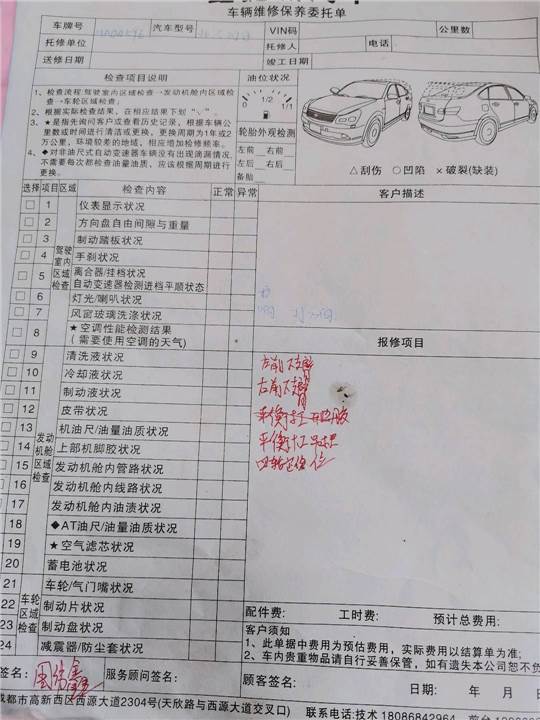 车辆维修保养委托单
车牌号 汽车型号 VIN码 公里数
托修单位 托修人 电话
送修日期 竣工日期
检查项目说明
1、检查流程:驾驶室内区域检查→发动机舱内区域检查
→车轮区域检查;
2、根据实际检查结果，在相应结果下划“√”。
3、★是指先询问客户或查看历史记录，根据车辆公
里数或时间进行清洁或更换，更换周期为1年或2
万公里，环境较差的地域，相应增加检修频率。
4、◆对非油尺式自动变速器车辆没有出现滴漏情况，
不需要每次都检查油量油质，应该根据周期进行
更换。
油位状况
0 1/2 1/1
轮胎外观检测
左前 右前
左后 右后
备胎
△刮伤 ○凹陷 ×破裂(缺装)
选择 项目 区域 检查内容 正常 异常 客户描述
驾驶室内区域检查
□ 1 仪表显示状况
□ 2 方向盘自由间隙与重量
□ 3 制动踏板状况
□ 4 手刹状况
□ 5 离合器/挂档状况
自动变速器检测进档平顺状态
□ 6 灯光/喇叭状况
□ 7 风窗玻璃洗涤状况
□ 8 ★空调性能检测结果
(需要使用空调的天气)
报修项目
发动机舱区域检查
□ 9 清洗液状况
□ 10 冷却液状况
□ 11 制动液状况
□ 12 皮带状况
□ 13 机油尺/油量油质状况
□ 14 上部机脚胶状况
□ 15 发动机舱内管路状况
□ 16 发动机舱内线路状况
□ 17 发动机舱内油渍状况
□ 18 ◆AT油尺/油量油质状况
□ 19 ★空气滤芯状况
□ 20 蓄电池状况
车轮区域检查
21 车轮/气门嘴状况
22 制动片状况
23 制动盘状况
24 减震器/防尘套状况
左前下支臂
右前下支臂
平衡杆
平衡杆
四轮定位
配件费: 工时费: 预计总费用:
客户须知
1、此单据中费用为预估费用，实际费用以结算单为准;
2、车内贵重物品请自行妥善保管，如有遗失本公司恕不负
签名: 服务顾问签名: 顾客签名: 日期: 年 月 日
成都市高新西区西源大道2304号(天欣路与西源大道交叉口) 联系电话:技术 18086842964